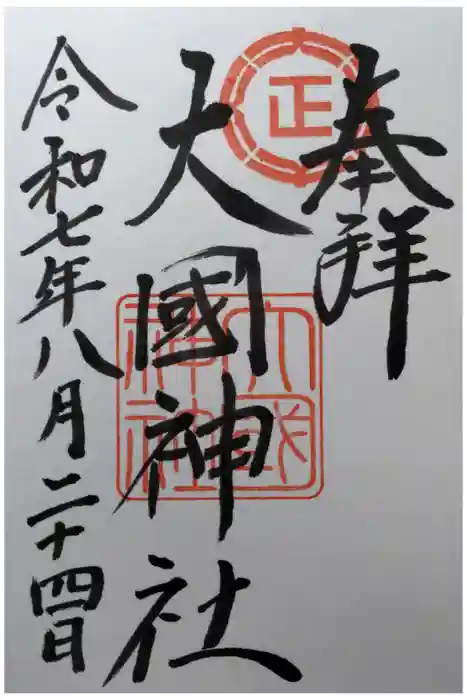 奉拝
正
大國神社
大國神社
令和七年八月二十四日